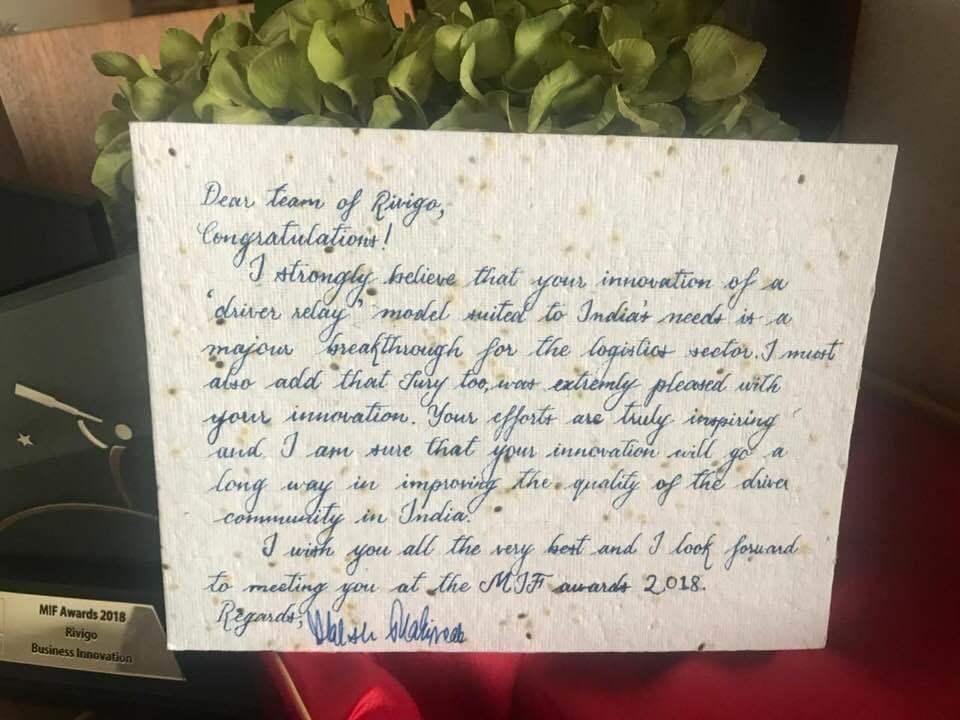 Dear team of Rivigo,
Congratulations!
I strongly believe that your innovation of a
'driver relay' model suited to India's needs is a
majour breakthrough for the logistics sector. I must
also add that Jury too, was extremly pleased with
your innovation. Your efforts are truly inspiring
and I am sure that your innovation will go a
long way in improving the quality of the driver
community in India.
I wish you all the very best and I look forward
to meeting you at the MIF awards 2018.
Regards,
MIF Awards 2018
Rivigo
Business Innovation